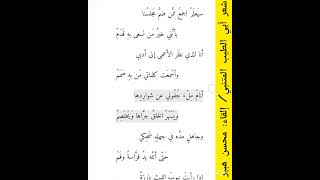 سَيَعْلَمُ الجَمْعُ مِمَّن ضَمَّ مَجْلِسُنَا
بِأَنَّنِي خَيْرُ مَن تَسْعَى بِهِ قَدَمُ
أَنَا الَّذِي نَظَرَ الأَعْمَى إِلَى أَدَبِي
وَأَسْمَعَتْ كَلِمَاتِي مَن بِهِ صَمَمُ
أَنَامُ مِلْءَ جُفُونِي عَن شَوَارِدِهَا
وَيَسْهَرُ الخَلْقُ جَرَّاهَا وَيَخْتَصِمُ
وَجَاهِلٍ مَدَّهُ فِي جَهْلِهِ ضَحِكِي
حَتَّى أَتَتْهُ يَدٌ فَرَّاسَةٌ وَفَمُ
إِذَا رَأَيْتَ نُيُوبَ اللَّيْثِ بَارِزَةً
شعر أبي الطيب المتنبي / إلقاء: محسن هبير